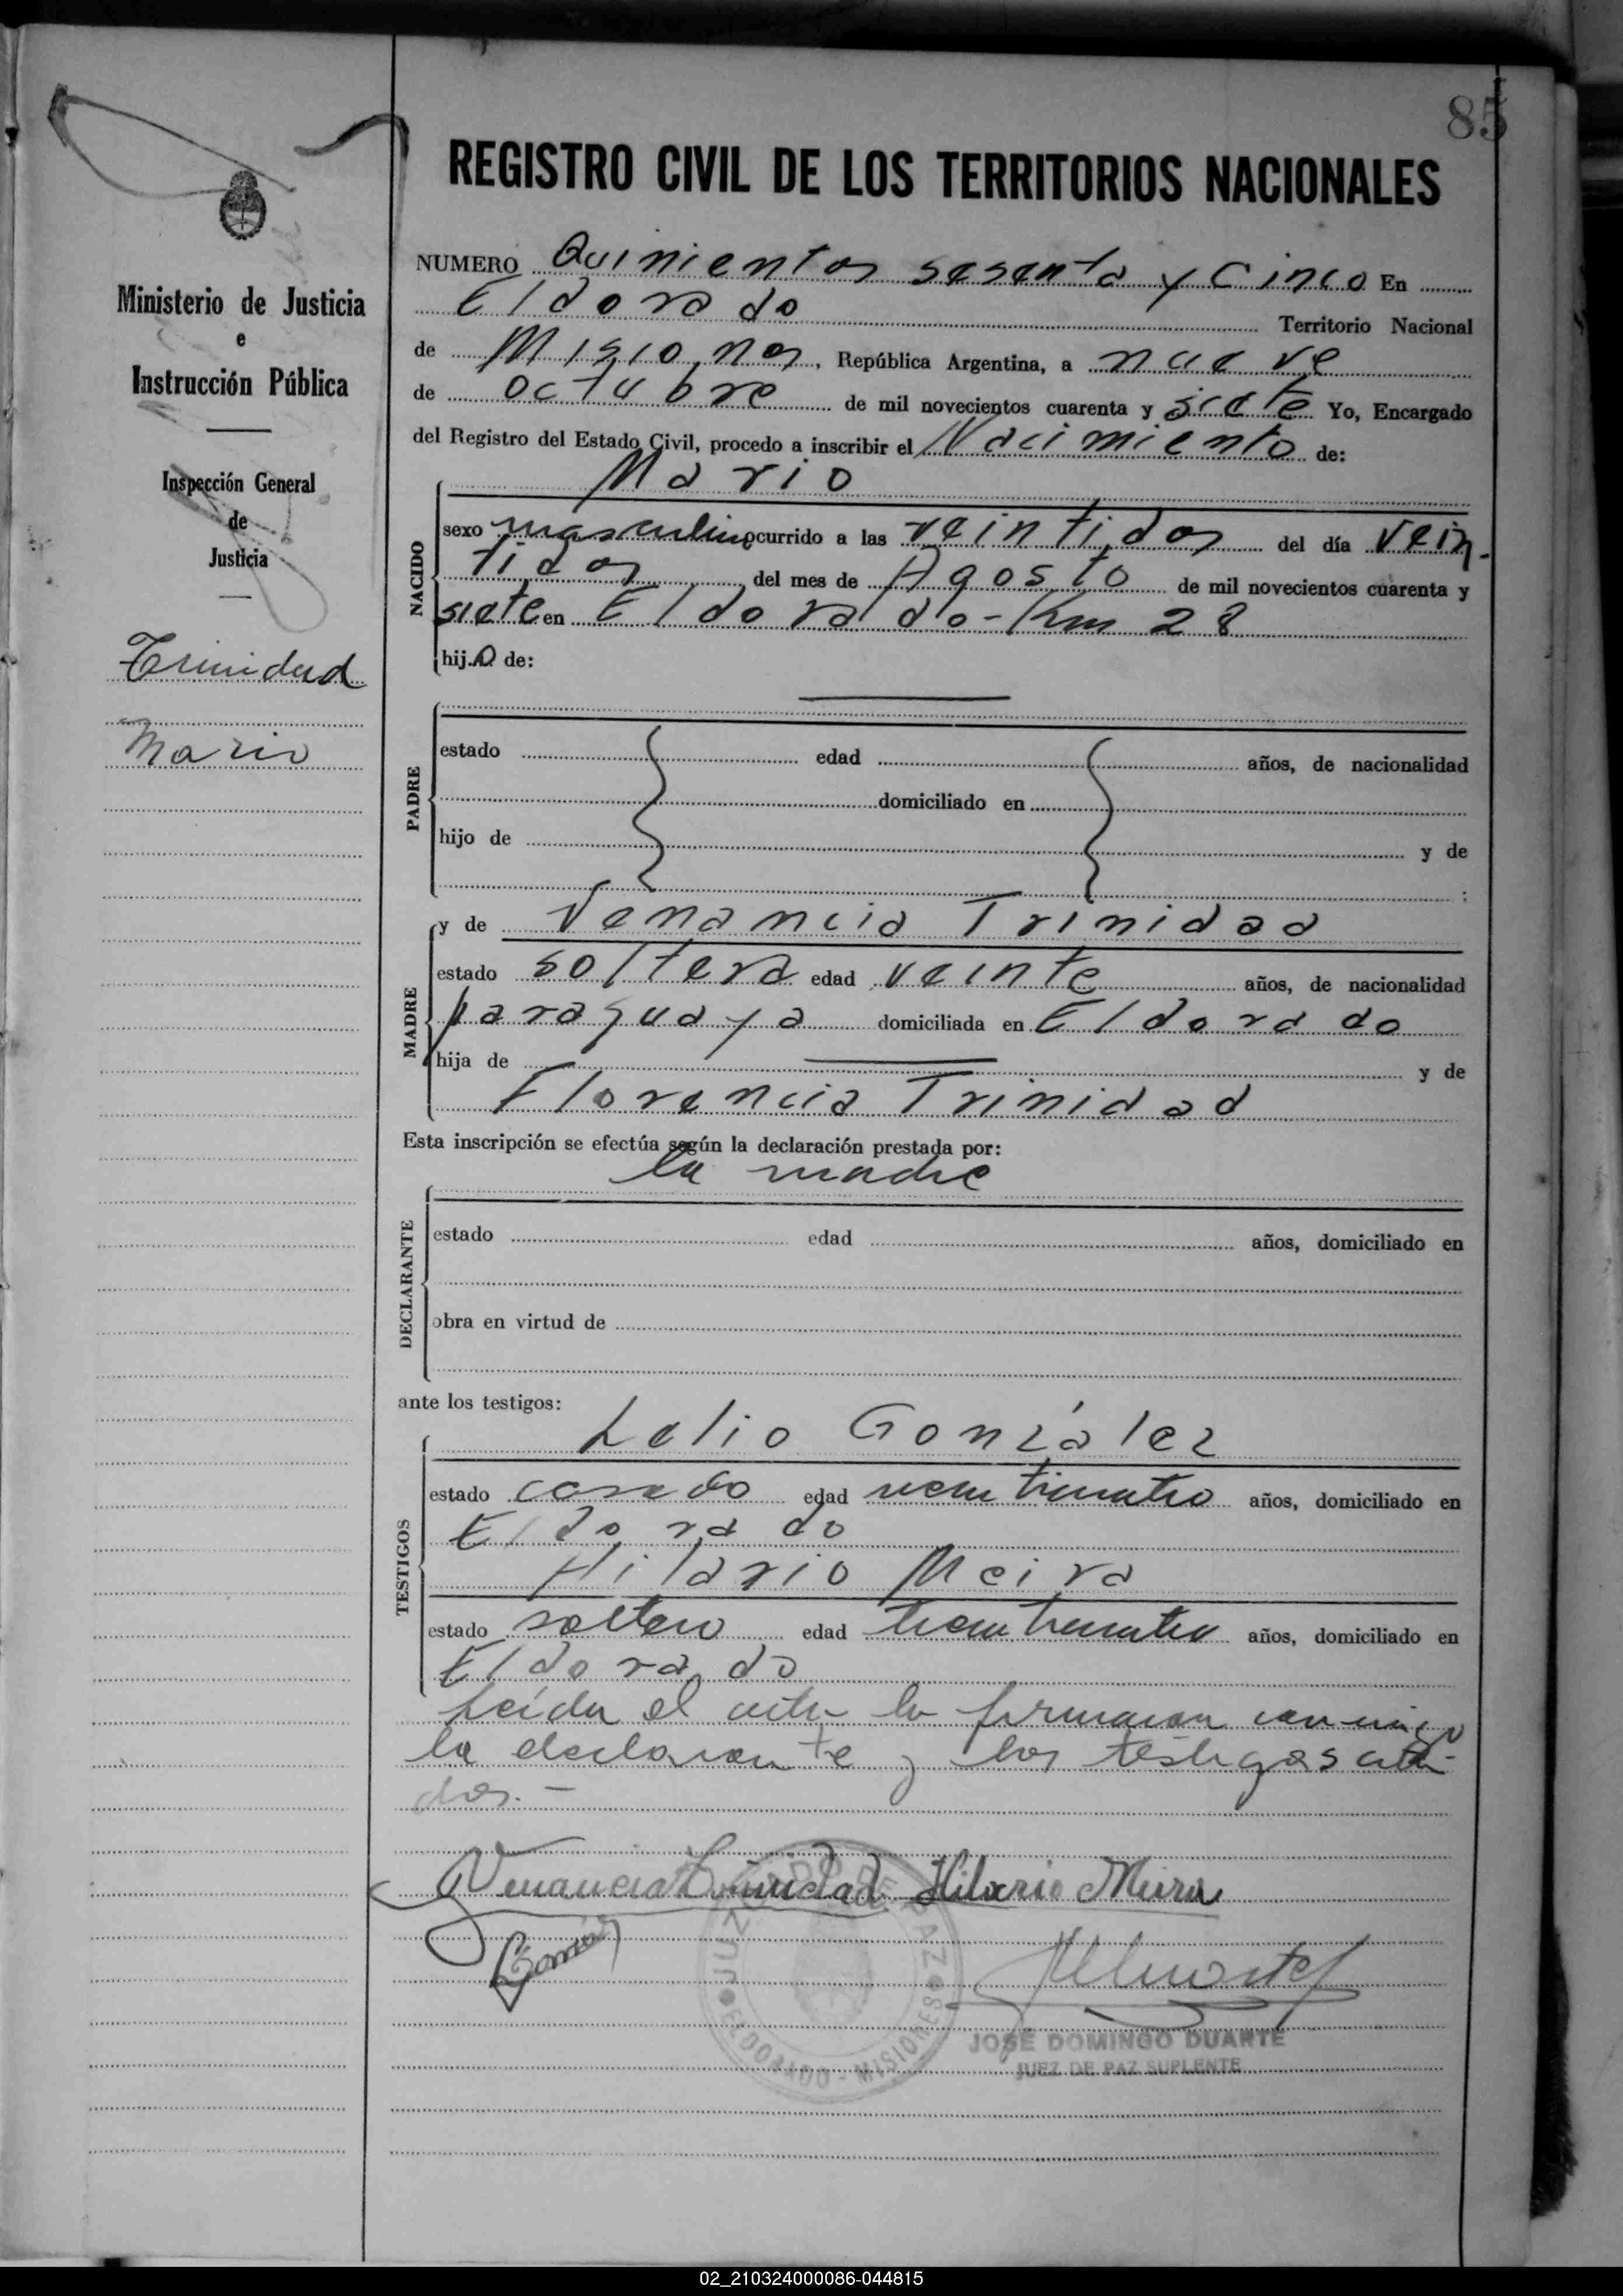 85
REGISTRO CIVIL DE LOS TERRITORIOS NACIONALES
Ministerio de Justicia
e
Instrucción Pública
Inspección General
de
Justicia
Trinidad
Mario
NUMERO Quinientos sesenta y Cinco En
Eldorado Territorio Nacional
de Misiones, República Argentina, a nueve
de octubre de mil novecientos cuarenta y siete Yo, Encargado
del Registro del Estado Civil, procedo a inscribir el Nacimiento de:
Mario
NACIDO
sexo masculino ocurrido a las veintidos del día vein-
tidos del mes de Agosto de mil novecientos cuarenta y
siete en Eldorado-Km 28
hijo de:
PADRE
estado edad años, de nacionalidad
domiciliado en
hijo de y de
:
MADRE
y de Venancia Trinidad
estado soltera edad veinte años, de nacionalidad
paraguaya domiciliada en Eldorado
hija de y de
Florencia Trinidad
Esta inscripción se efectúa según la declaración prestada por:
la madre
DECLARANTE
estado edad años, domiciliado en
obra en virtud de
ante los testigos:
TESTIGOS
Lelio González
estado casado edad años, domiciliado en
Eldorado
Hilario Meira
estado soltero edad años, domiciliado en
Eldorado
Leída el acta la firmaron conmigo
la declarante y los testigos cita-
dos.-
Venancia Trinidad Hilario Meira
JUZGADO DE PAZ
ELDORADO - MISIONES
JOSÉ DOMINGO DUARTE
JUEZ DE PAZ SUPLENTE
02_210324000086-044815